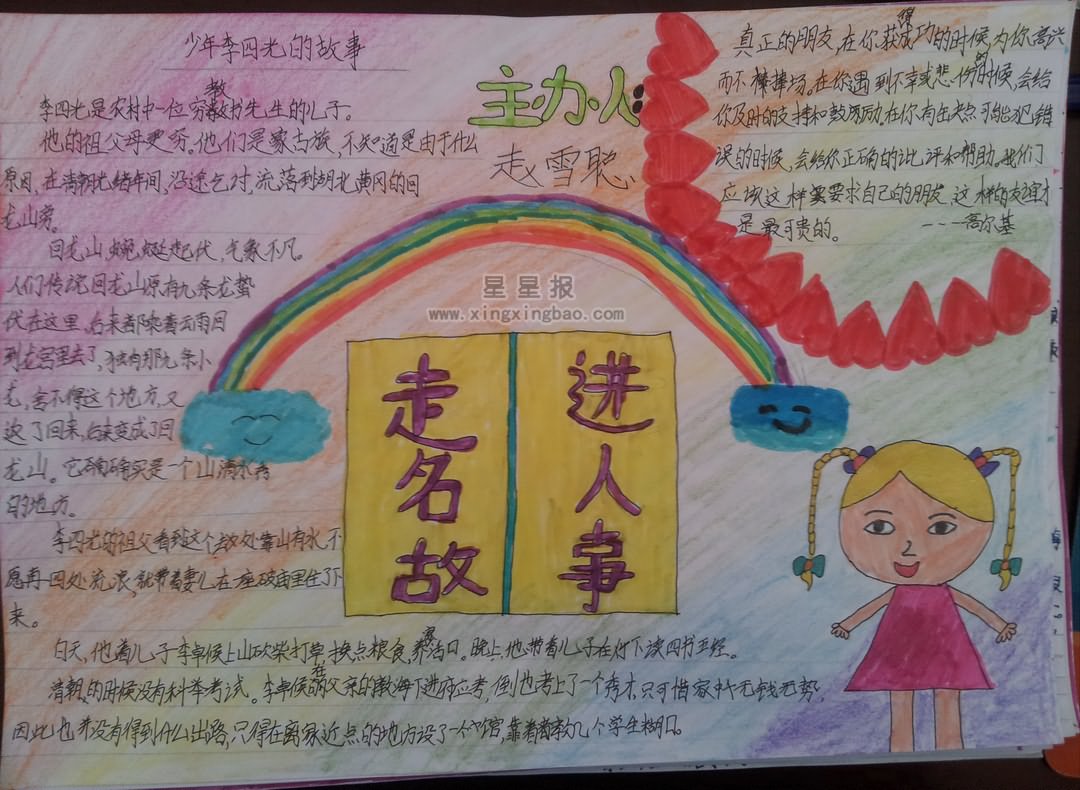 少年李四光的故事
李四光是农村中一位穷教书先生的儿子。
他的祖父母更穷。他们是蒙古族，不知道是由于什么
原因，在清朝光绪年间，沿途乞讨，流落到湖北黄冈的回
龙山旁。
回龙山，蜿蜒起伏，气象不凡。
人们传说回龙山原有九条龙蛰
伏在这里，后来都乘着云雨回
到龙宫里去了，独有那九条小
龙，舍不得这个地方，又
返了回来，后来变成了回
龙山。它确确实实是一个山清水秀
的地方。
李四光的祖父看到这个去处靠山有水，不
愿再四处流浪，就带着妻儿在一座破庙里住了下
来。
白天，他着儿子李卓侯上山砍柴打草，换点粮食，养家活口。晚上，他带着儿子在灯下读四书五经。
清朝的时候没有科举考试。李卓侯在父亲的教诲下进府应考，倒也考上了一个秀才，只可惜家中无钱无势，
因此也并没有得到什么出路，只得在离家近点的地方设了一个馆，靠着教几个学生糊口。
主办人：
走雪聪
真正的朋友，在你获得成功的时候，为你高兴
而不捧场。在你遇到不幸或悲伤的时候，会给
你及时的支持和鼓励。在你有缺点可能犯错
误的时候，会给你正确的批评和帮助。我们
应该这样要求自己的朋友，这样的友谊才
是最可贵的。 ———高尔基
星星报
www.xingxingbao.com
走进
名人
故事